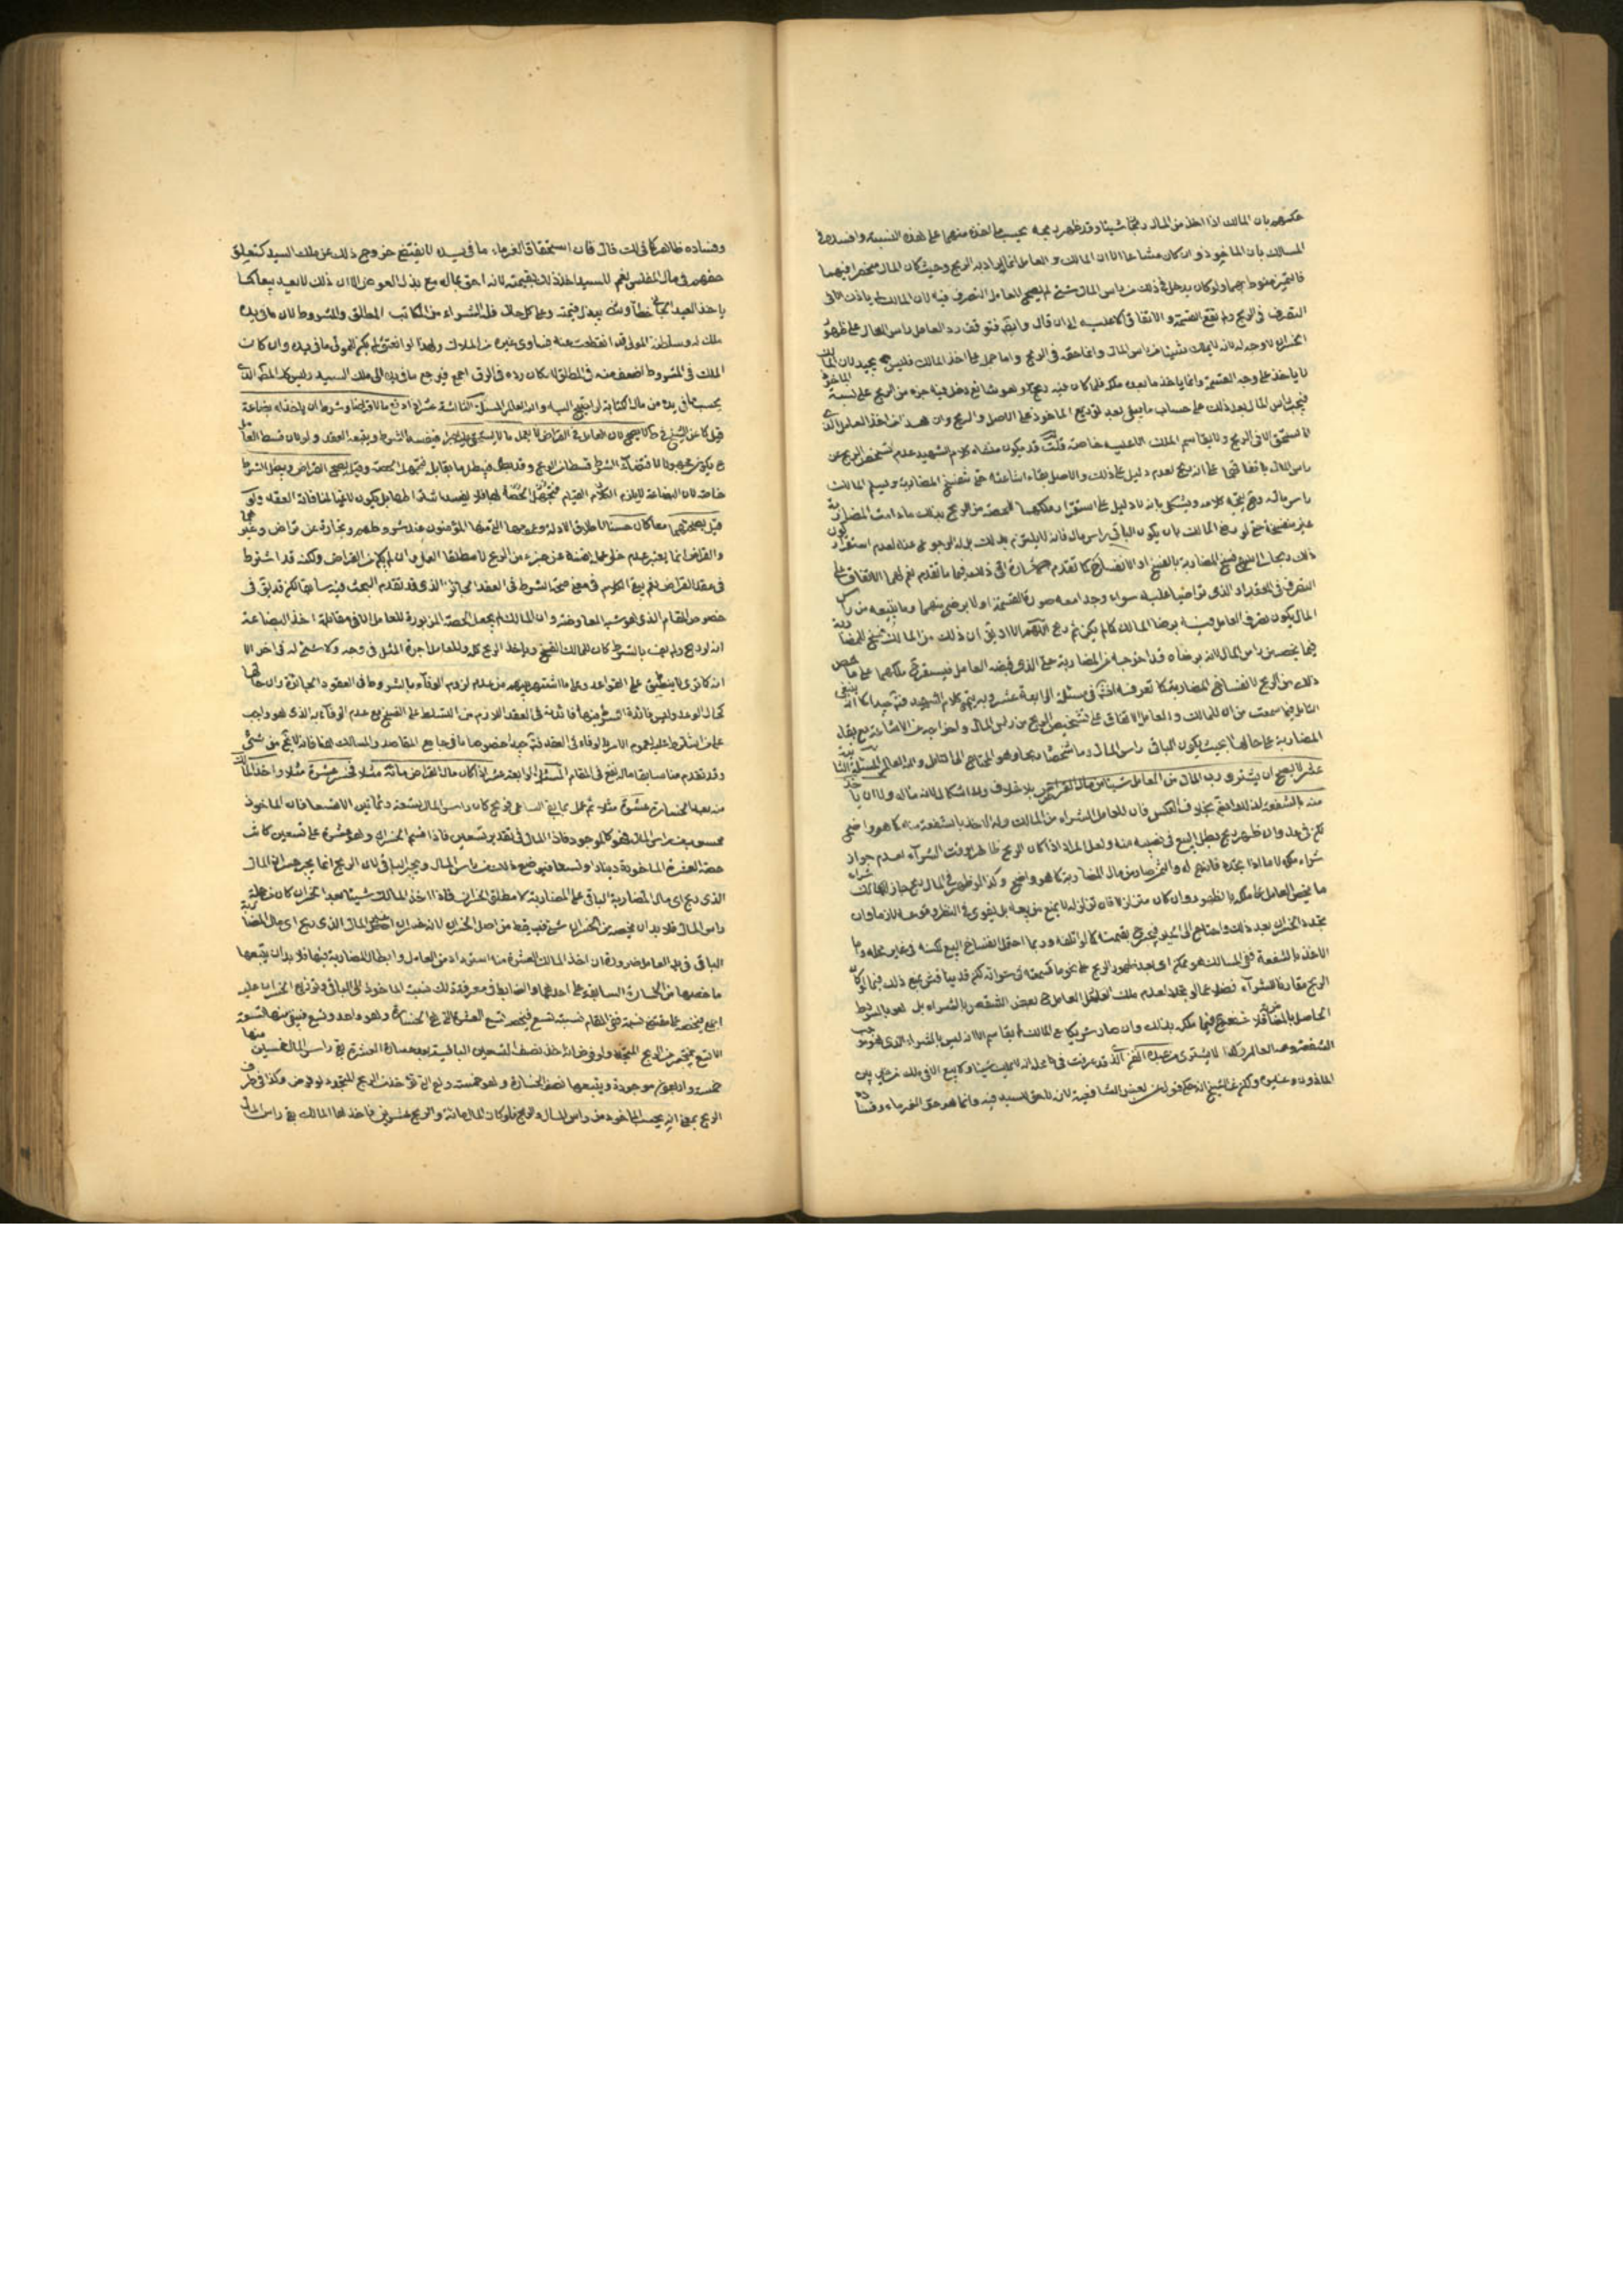 بان المالك اذا اخذ من المال شيئا وقد ظهر ربحه يحسب ما اخذه منهما على هذه النسبة وافسده في
المسالك بان الماخوذ وان كان مشاعا الا ان المالك والعامل انما ارادا به الربح وحيث كان المال منحصرا فيهما
ولو كان يدخل في ذلك من راس المال شيء لم يصح للعامل التصرف فيه لان المالك لم ياذن الا في
التصرف في الربح ولم تقع القسمة والاتفاق الا عليه الى ان قال فتوقف رد العامل راس المال على ظهور
الخسران لا وجه له لانه لا يملك شيئا من راس المال وانما حقه في الربح واما حمل على اخذ المالك فليس بجيد لان المالك
لا ياخذ على وجه القسمة وانما ياخذ ما يعد ملكه فلما كان فيه ربح وهو شائع دخل فيه جزء من الربح على نسبة الماخوذ
راس المال بعد ذلك على حساب ما يبقى بعد توزيع الماخوذ على الاصل والربح وان هذا من اخذ العامل الذي
لا يستحق الا في الربح ولا يقاسم الملك الا عليه خاصة قلت قد يكون منشاء كلام الشهيد عدم تشخص الربح عن
راس المال باتفاقهما على انه ربح لعدم دليل على ذلك والاصل بقاء اشاعته حتى تنفسخ المضاربة ويسلم المالك
راس ماله بانه لا دليل على استقرار ملكهما للحصة من الربح بذلك ما دامت المضاربة
رضي المالك بان يكون الباقي راس مال فانه لا يلتزم بذلك بل له الرجوع عنه لعدم استقرار
ذلك فسخ المضاربة بالفسخ او الانفساخ كما تقدم ما تقدم نعم لهما الاتفاق على
التصرف في المقدار الذي تراضيا عليه سواء وجد امعه صورة القسمة اولا برضى منهما وما يتبعه من راس
المال يكون تصرف العامل فيه برضا المالك كما لم يكن ثم ربح اللهم الا ان يق ان ذلك من المالك فسخ للمضاربة
فيما يخصه من راس المال لانه برضاه قد اخرجه عن المضاربة حتى الذي قبضه العامل فيستقر ملكهما على ما خص
ذلك من الربح لانفساخ المضاربة كما تعرفه انش في مسئلة الرابعة عشر وبه يتم كلام الشهيد فت جيدا كما انه ينبغي
التامل فيما سمعت من ان للمالك والعامل الاتفاق على تشخيص الربح من راس المال واخراجه عن الاشاعة مع بقاء
المضاربة على حالها بحيث يكون الباقي راس المال وما شخصاه ربحا وهو محتاج الى تامل والله العالم المسئلة الثانية
عشر لا يصح ان يشتري رب المال من العامل شيئا من مال القراض بلا خلاف ولا اشكال لانه ماله ولا ان ياخذ
منه بالشفعة لذلك ايضا بخلاف العكس فان للعامل الشراء من المالك وله الاخذ بالشفعة منه كما هو واضح
لكن وان ظهر ربح بطل البيع في نصيبه منه ولعل المراد اذا كان الربح ظاهرا وقت الشراء لعدم جواز
شراء ملكه لا ما اذا تجدد فانه ح له والثمن صار من مال المضاربة كما هو واضح وكذا لو ظهر في المال ربح جاز للمالك شراء
ما يخص العامل على ملكه بالظهور وان كان متزلزلا فان تزلزله لا يمنع من بيعه بل يقوى في النظر وقوعه لازما وان
تجدد الخسران بعد ذلك واحتاج الى الجبر فيرجع بقيمته كما لو اتلفه وربما احتمل انفساخ البيع لكنه في غير محله واما
الاخذ بالشفعة ففي المسالك هو ممكن اي بعد ظهور الربح على نحو ما سمعته في شرائه لكن قد يناقش بمنع ذلك فيما لو كان
الربح مقارنا للشراء فضلا عما لو تجدد لعدم ملك العامل ح بعض الشقص بالشراء بل هو بالشرط
الحاصل بالمضاربة فلا شفعة ح فيما ملكه بذلك وان صار شريكا مع المالك يقاسم الا انه ليس بالشراء الذي هو موجب
الشفعة والله العالم وكذا لا يشتري من عبده القن الذي قد عرفت في محله انه لا يملك شيئا ولا بيع الا في ملك من غير فرق بين
الماذون وغيره ولكن عن الشيخ انه حكى قولا عن بعض الشافعية لانه لا حق للسيد فيه وانما هو حق الغرماء وفساده
وفساده ظاهر كما في لك قال فان استحقاق الغرماء ما في يده لا يقتضي خروج ذلك عن ملك السيد كتعلق
حقهم في مال المفلس نعم للسيد اخذ ذلك بقيمته لانه احق بماله مع بذل العوض الا ان ذلك لا يعد بيعا كما
ياخذ العبد الجاني خطأ ببذل قيمته وعلى كل حال فله الشراء من المكاتب المطلق والمشروط لان ما في يده
ملك له وسلطنة المولى قد انقطعت عنه فساوى غيره من الملاك ولهذا لو انعتق لم يكن للمولى ما في يده وان كانت
الملك في المشروط اضعف منه في المطلق لامكان رده في الرق اجمع فيرجع ما في يده الى ملك السيد وليس كذلك المطلق الذي
يحسب ما في يده من مال الكتابة لو رجع اليه والله العالم المسئلة الثالثة عشر اذا دفع مالا قراضا وشرط ان ياخذ له بضاعة
قيل كما عن الشيخ في ط لا يصح لان العامل في القراض لا يعمل ما لا يستحق عليه اجرا فيفسد الشرط ويتبعه العقد ولان قسط العامل
ح يكون مجهولا لاقتضاء الشرط قسطا من الربح وقد بطل فيبطل ما يقابله فتجهل الحصة وقيل يصح القراض ويبطل الشرط
خاصة لان البضاعة لا يلزم القيام بها فلا يفسد اشتراطها بل يكون لاغيا لمنافاته العقد ولو
قيل بصحتهما معا كان حسنا لاطلاق الادلة وعمومها التي منها المؤمنون عند شروطهم وتجارة عن تراض وغيرهما
والقراض انما يعتبر عدم خلو عمل يضمنه عن جزء من الربح لا مطلقا العمل وان لم يكن من القراض ولكنه قد اشترط
في عقد القراض نعم يبقى الكلام في معنى صحة الشرط في العقد الجائز الذي قد تقدم البحث فيه سابقا لكن قد يق في
خصوص المقام الذي هو شبه المعاوضة وان المالك لم يجعل الحصة المزبورة للعامل الا في مقابلة اخذ البضاعة
انه لو ربح ولم يف بالشرط كان للمالك الفسخ وياخذ الربح كله وللعامل اجرة المثل في وجه ولا شيء له في اخر الا
انه كما ترى لا ينطبق على القواعد وعلى ما اشتهر بينهم من عدم لزوم الوفاء بالشروط في العقود الجائزة وان حالها
كحال الوعد وليس فائدة الشرط فيها فائدته في العقد اللازم من التسلط على الفسخ مع عدم الوفاء به الذي هو واجب
على من اشترط عليه لعموم الامر بالوفاء في العقد فت جيدا خصوصا ما في جامع المقاصد والمسالك هنا فانه لا يخ من شيء
وقد تقدم منا سابقا ماله نفع في المقام المسئلة الرابعة عشر اذا كان مال القراض مائة مثلا فخسر عشرة مثلا واخذ المالك
منه بعد الخسارة عشرة مثلا ثم عمل بما بقي الساعي فربح كان راس المال تسعة وثمانين الا تسعا فان الماخوذ
محسوب من راس المال فهو كالموجود فاذا المال في تقدير تسعين فاذا قسم الخسران وهو عشرة على تسعين كانت
حصة العشرة الماخوذة دينارا وتسعا فيوضع ذلك من راس المال ويجبر الباقي لان الربح انما يجبر خسران المال
الذي ربح اي مال المضاربة الباقي على المضاربة لا مطلق الخسران فاذا اخذ المالك شيئا بعد الخسران كان من جملة
راس المال فلا بد ان يخصه من الخسران شيء فيسقط من اصل الخسران لانه خسران المال الذي ربح اي مال المضاربة
الباقي في يد العامل ضرورة ان اخذ المالك العشرة منه استرداد من العامل وابطال للمضاربة فيها فلا بد ان يتبعها
ما خصها من الخسارة السابقة والضابط في معرفة ذلك نسبة الماخوذ الى الباقي وتوزيع الخسران عليه
اجمع فيخصه على مقتضى نسبته ففي المقام نسبته تسع فيخصه تسع العشرة التي هي الخسارة وهو واحد وتسع فيبقى منها تسعة
الا تسع ينجبر من الربح المتجدد ولو فرض انه اخذ نصف التسعين الباقية بعد خسارة العشرة بقي راس المال خمسين منها
خمسة واربعون موجودة ويتبعها نصف الخسارة وهو خمسة وهي التي تؤخذ من الربح المتجدد لو فرض وكذا في طرف
الربح بمعنى انه يحسب الماخوذ من راس المال والربح فلو كان المال مائة والربح عشرين فاخذها المالك بقي راس المال